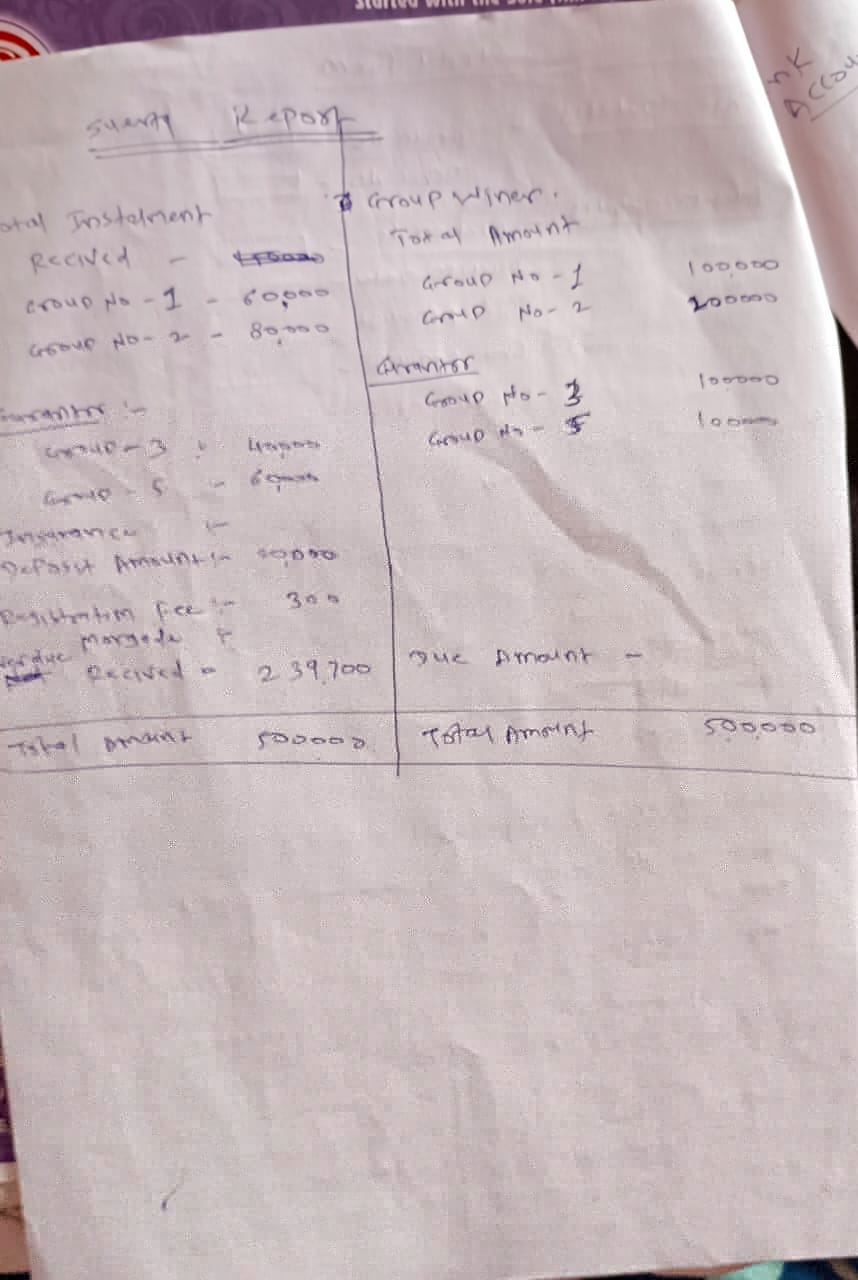 Started with the
nk
Accou
Suerty Report
otal Instolment
Recived -
Group No - 1 - 60,000
Group No - 2 - 80,000
arantor :-
Group - 3 : 40,000
Group - 5 - 60,000
Insurance :-
Deposit Amount :- 20,000
Registration Fee :- 300
Morgade &
Recived = 239,700
Total Amount 500000
Group Winer.
Total Amount
Group No - 1 100,000
Group No - 2 200000
Grantor
Group No - 3 100000
Group No - 5 100000
Due Amount -
Total Amount 500,000